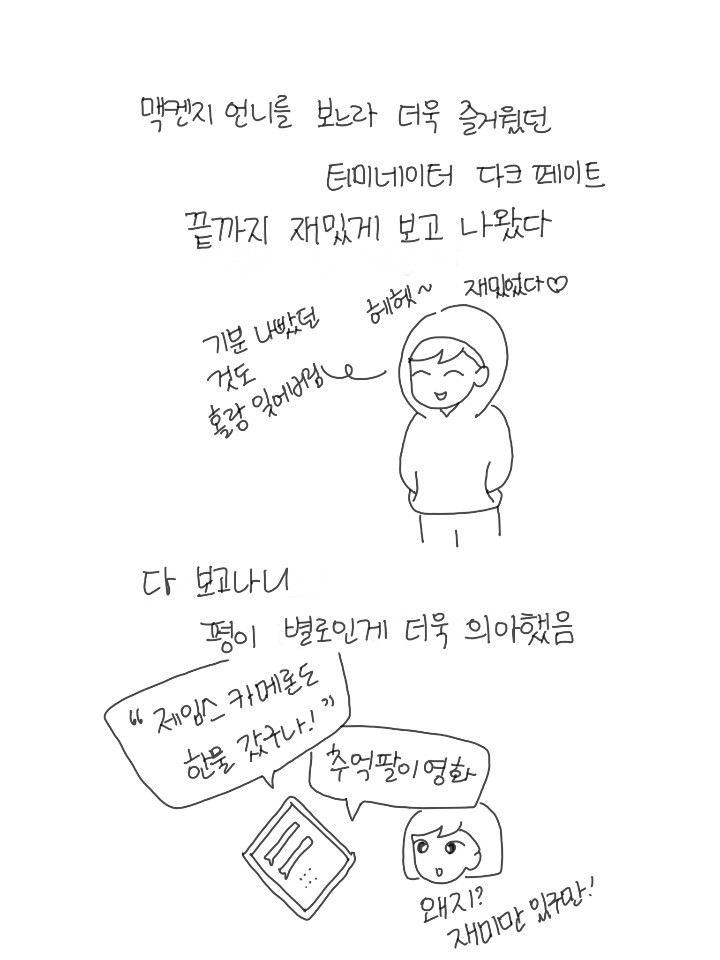 맥켄지 언니를 보느라 더욱 즐거웠던
터미네이터 다크 페이트
끝까지 재밌게 보고 나왔다
헤헷~ 재밌었다♡
기분 나빴던
것도
홀랑 잊어버림
다 보고나니
평이 별로인게 더욱 의아했음
"제임스 카메론도
한물 갔구나!"
추억팔이영화
왜지?
재미만 있구만!